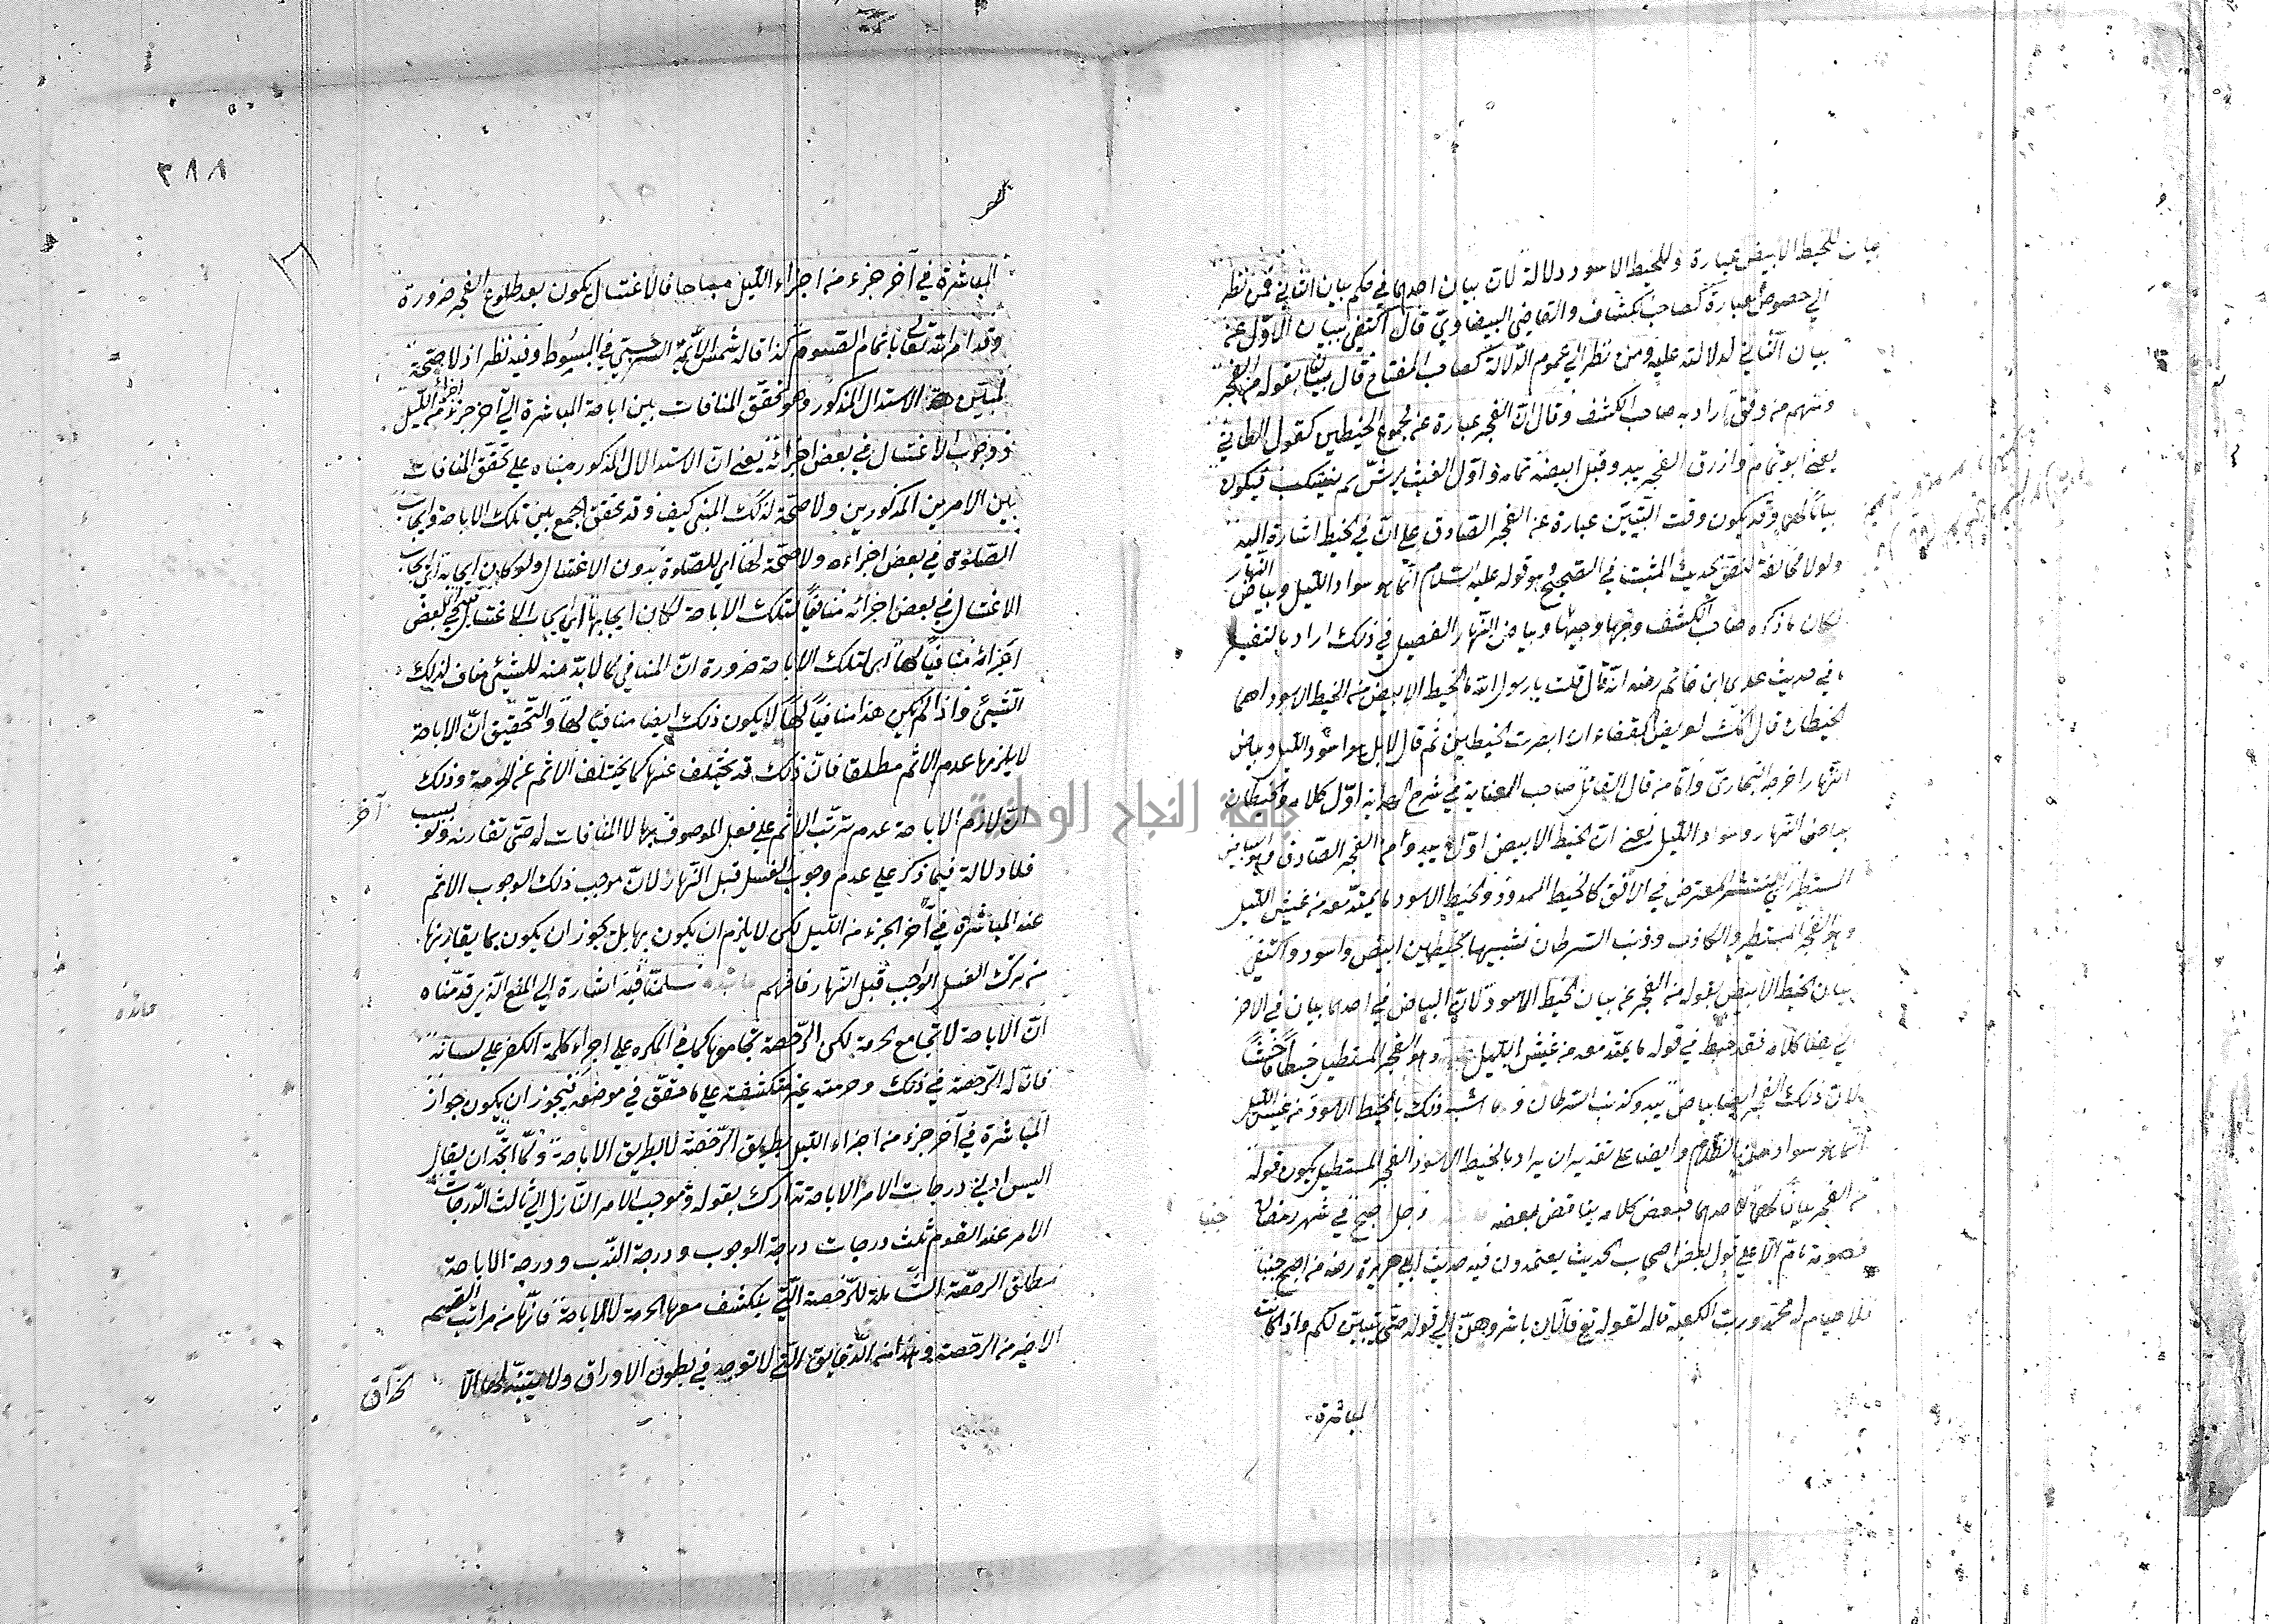 بيان للخيط الابيض عبارة وللخيط الاسود دلالة لان بيان احدهما في حكم بيان الثاني فمن نظر
الي خصوص العبارة كصاحب الكشاف والقاضي البيضاوي قال اكتفي ببيان الاول عن
بيان الثاني لدلالته عليه ومن نظر الي عموم الدلالة كصاحب المفتاح قال بينا بقوله من الفجر
ومنهم من وفق اراد به صاحب الكشف وقال ان الفجر عبارة عن مجموع الخيطين كقول الطائي
يعني ابو تمام وازرق الفجر يبدو قبل ابيضه تمامه واول الغيث رش ثم ينسكب فيكون
بيانا لهما وقد يكون وقت التبين عبارة عن الفجر الصادق علي ان في الخيط اشارة اليه
ولولا مخالفة لنص الحديث المثبت في الصحيح وهو قوله عليه السلام انما هو سواد الليل وبياض النهار
لكان ما ذكره صاحب الكشف وجها وجيها وبياض النهار الفصيل في ذلك اراد بالتفسير
ما في حديث عدي ابن حاتم رضه انه قال قلت يا رسول الله ما الخيط الابيض من الخيط الاسود اهما
الخيطان قال انك لعريض القفاء ان ابصرت الخيطين ثم قال لا بل هو سواد الليل وبياض
النهار اخرجه البخاري واما من قال القائل صاحب العناية في شرح الهداية اول كلامه والخيطان
بياض النهار وسواد الليل يعني ان الخيط الابيض اول ما يبدو من الفجر الصادق وهو البياض
المستطير اي المنتشر المعترض في الافق كالخيط الممدود والخيط الاسود ما يمتد معه من غبش الليل
وهو الفجر المستطير والكاذب وذنب السرطان شبيها بخيطين ابيض واسود واكتفي
ببيان الخيط الابيض بقوله من الفجر عن بيان الخيط الاسود لان البياض في احدهما بيان في الاخر
الي هنا كلامه فقد خبط في قوله ما يمتد معه من غبش الليل وهو الفجر المستطيل خبطا فاحشا
لان ذلك الفجر ايضا بياض يبدو كذنب السرطان وما اشبه ذلك بالخيط الاسود من غبش الليل
انما هو سواد الظلام وايضا علي تقدير ان يراد بالخيط الاسود الفجر المستطيل يكون قوله
من الفجر بيانا لهما لا لاحدهما فبعض كلامه يناقض بعضه رجل اصبح في شهر رمضان جنبا
فصومه تام الا علي قول بعض اصحاب الحديث يعتمدون فيه حديث ابي هريرة رضه من اصبح جنبا
فلا صيام له محمد ورب الكعبة قاله لقوله تع فالآن باشروهن الي قوله حتي يتبين لكم واذا كانت
المباشرة
٨٨٢
المباشرة في آخر جزء من اجزاء الليل مباحا فالاغتسال يكون بعد طلوع الفجر ضرورة
وقد امر الله تعالى باتمام الصوم كذا قاله شمس الائمة السرخسي في المبسوط وفيه نظر اذ لا صحة
لمبني الاستدلال المذكور وهو تحقق المنافات بين اباحة المباشرة الي آخر جزء من الليل
ووجوب الاغتسال في بعض اجزائه يعني ان الاستدلال المذكور مبناه علي تحقق المنافات
بين الامرين المذكورين ولا صحة لذلك المبني كيف وقد تحقق الجمع بين تلك الاباحة وايجاب
الصلوة في بعض اجزائه ولا صحة لها اي للصلوة بدون الاغتسال ولو كان ايجابه اي ايجاب
الاغتسال في بعض اجزائه منافيا لتلك الاباحة لكان ايجابها اي ايجاب الاغتسال في بعض
اجزائه منافيا لها اي لتلك الاباحة ضرورة ان المنافي لما لا بد منه للشيئ مناف لذلك
الشيئ واذا لم يكن هذا منافيا لها لا يكون ذلك ايضا منافيا لها والتحقيق ان الاباحة
لا يلزمها عدم الاثم مطلقا فان ذلك قد يختلف عنها كما يختلف الاثم عن الحرمة وذلك
ان لازم الاباحة عدم ترتب الاثم علي فعل الموصوف بها لا المنافات له حتي تقارنه ولو بسبب آخر
فلا دلالة فيما ذكر علي عدم وجوب الغسل قبل النهار لان موجب ذلك الوجوب الاثم
عند المباشرة في آخر الجزء من الليل لكن لا يلزم ان يكون بها بل يجوز ان يكون بما يقارنها
من ترك الغسل الواجب قبل النهار فافهم سلمنا فيه اشارة الي المنع الذي قدمناه
ان الاباحة لا تجامع الحرمة لكن الرخصة تجامعها كما في المكره علي اجراء كلمة الكفر علي لسانه
فان له الرخصة في ذلك وحرمته غير منكشفة علي ما حقق في موضعه فيجوز ان يكون جواز
المباشرة في آخر جزء من اجزاء الليل بطريق الرخصة لا بطريق الاباحة ولما اتجه ان يقال
اليس ادني درجات الامر الاباحة تدارك بقوله وموجب الامر النازل الي ثالث الدرجات
الامر عند القوم ثلث درجات درجة الوجوب ودرجة الندب ودرجة الاباحة
مطلق الرخصة الشاملة للرخصة التي ينكشف معها الحرمة لا الاباحة فانها من مراتب القسم
الاخير من الرخصة وهذا من الدقايق التي لا توجد في بطون الاوراق ولا يتنبه لها الا الحذاق